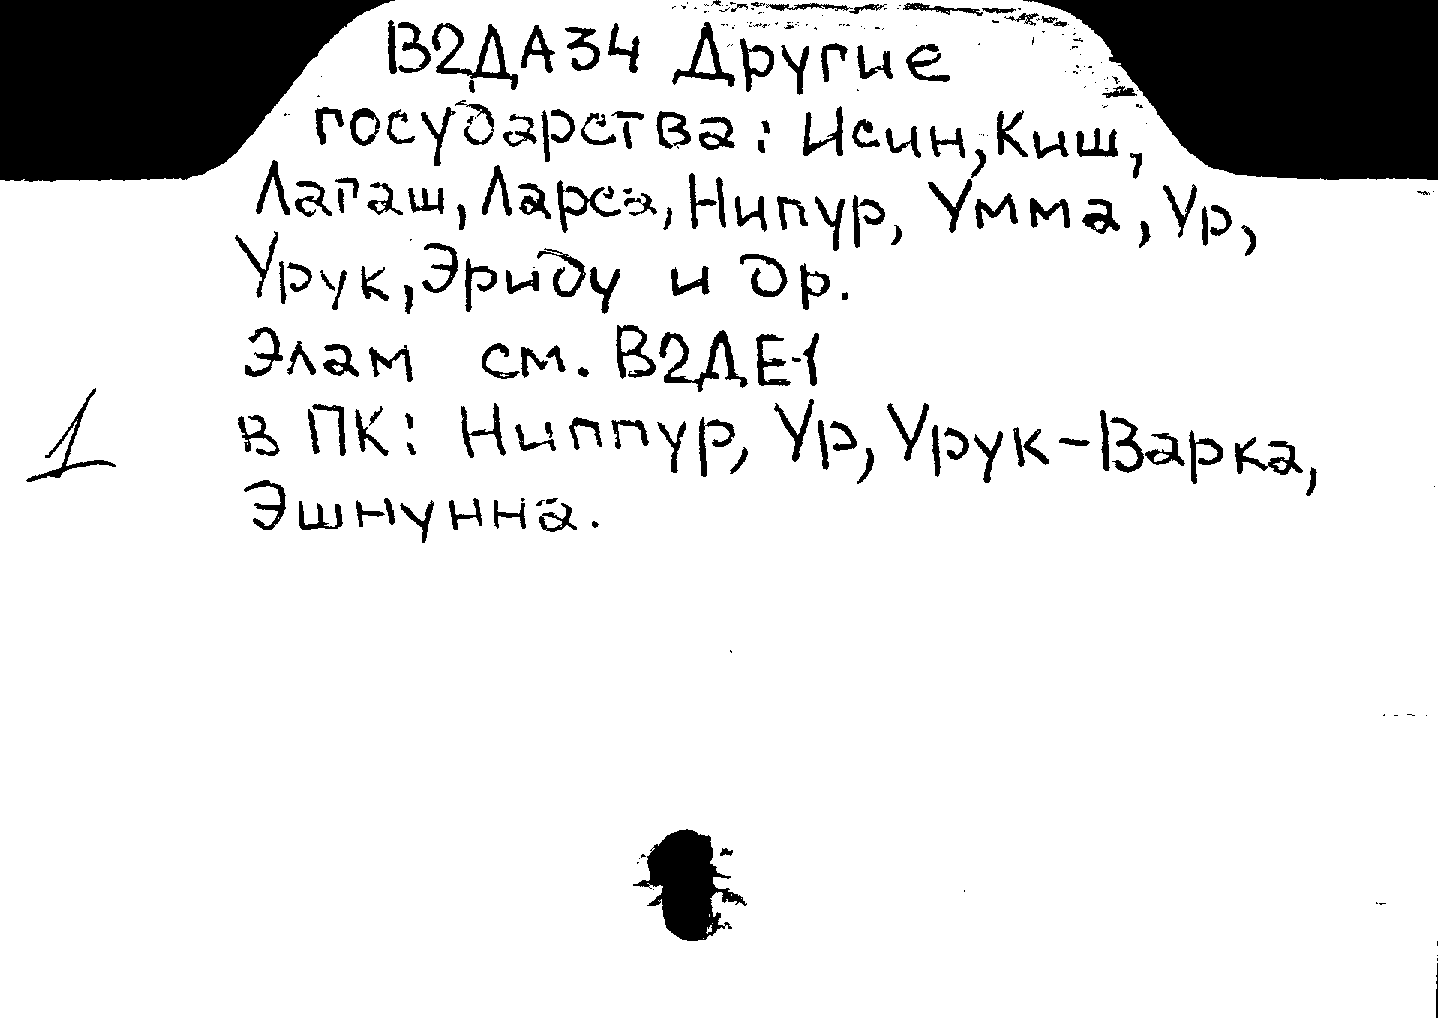 В2ДА34 Другие
государства: Исин, Киш,
Лагаш, Ларса, Нипур, Умма, Ур,
Урук, Эриду и др.
Элам см. В2ДЕ-1
1 в ПК: Ниппур, Ур, Урук-Варка,
Эшнунна.